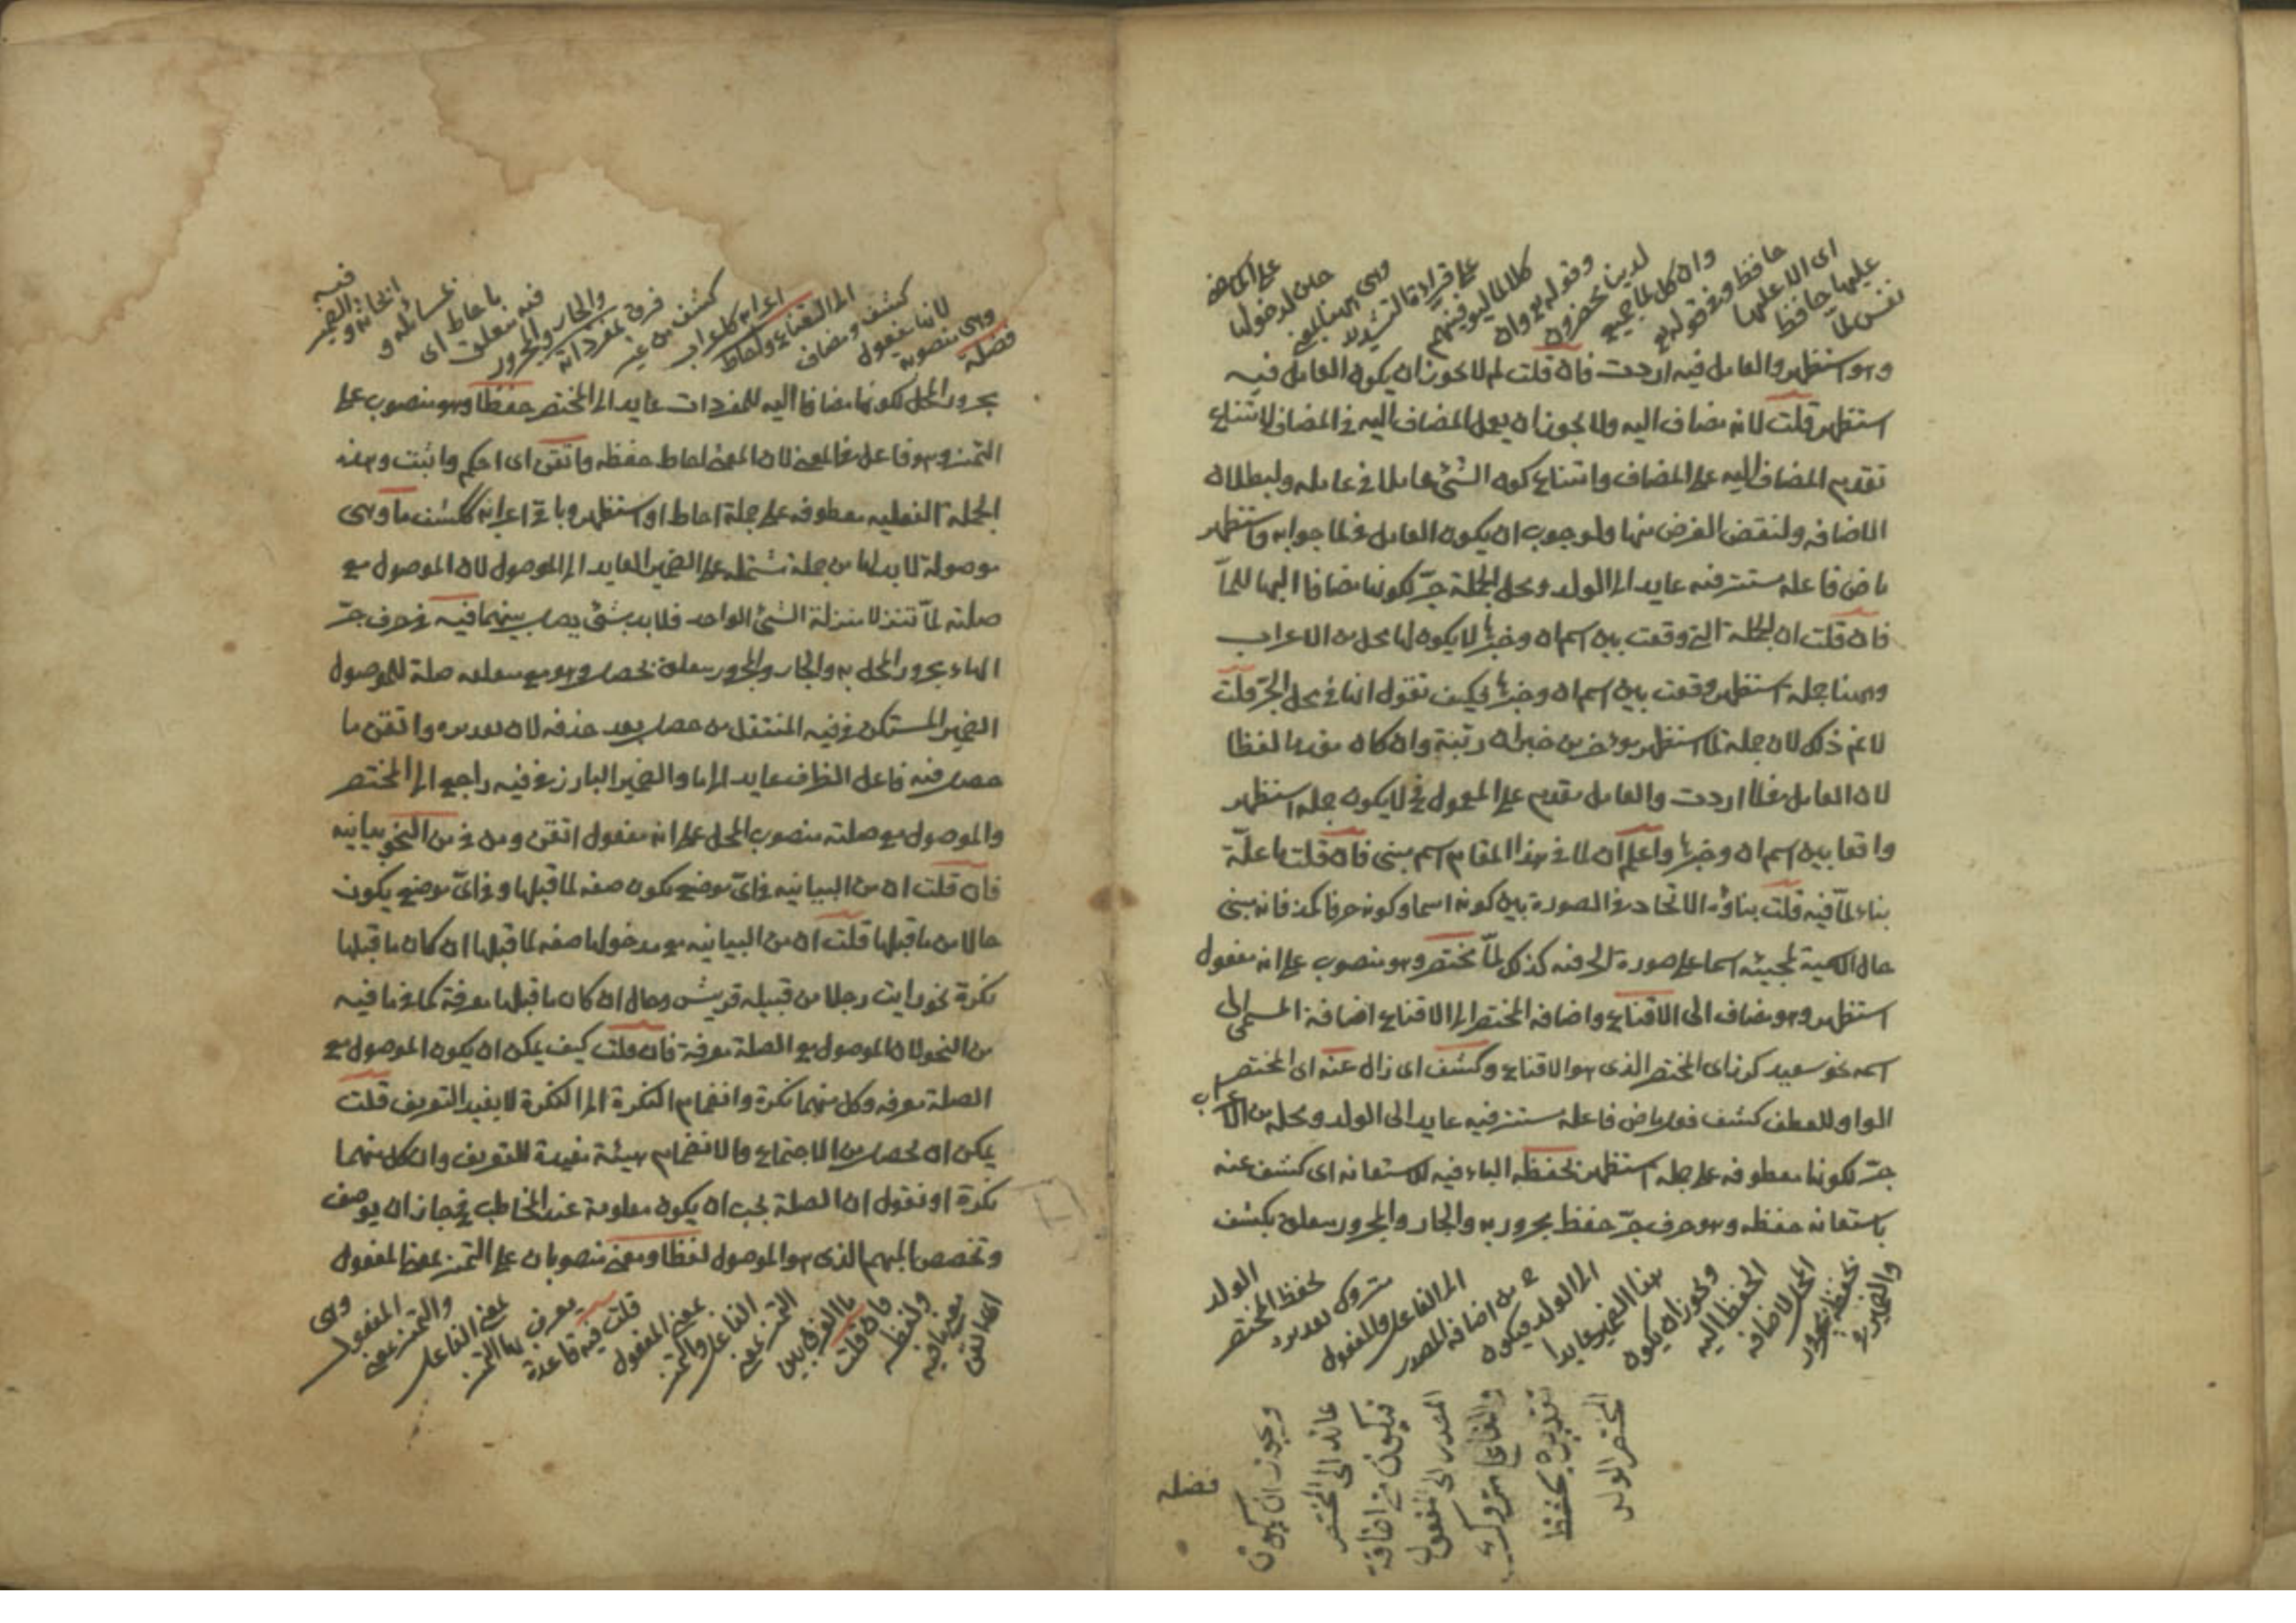 نفس لما
عليها حافظ
اى الا عليها
حافظ وفى قوله تع
وان كل لما جميع
لدينا محضرون
وقوله تع وان
كلا لما ليوفينهم
على قراءة التشديد
وهى ههنا بمعنى
حين لدخولها
على الماضى
وهو استظهر والعامل فيه اردت فان قلت لم لا يجوز ان يكون العامل فيه
استظهر قلت لانه مضاف اليه ولا يجوز ان يعمل المضاف اليه فى المضاف لامتناع
تقديم المضاف اليه على المضاف وامتناع كون الشئ عاملا فى عامله ولبطلان
الاضافه ولنقض الغرض منها ولوجوب ان يكون العامل فى لما جوابه واستظهر
ماض فاعله مستتر فيه عايد الى الولد ومحل الجملة جرّ لكونها مضافا اليها للمّا
فان قلت ان الجملة التى وقعت بين اسم ان وخبرها لا يكون لها محل من الاعراب
وههنا جملة استظهر وقعت بين اسم ان وخبرها فكيف تقول انها فى محل الجرّ قلت
لانم ذلك لان جملة لما استظهر مؤخر من خبر ان رتبة وان كان مقدما لفظا
لان العامل فى لما اردت والعامل مقدم على المعمول فح لا يكون جملة استظهر
واقعا بين اسم ان وخبرها واعلم ان لما فى هذا المقام اسم مبنى فان قلت ما علّة
بناء لمّا فيه قلت بناؤه الاتحاد فى الصورة بين كونه اسما وكونه حرفا كمذ فانه مبنى
حال الاسمية لمجيئه اسما على صورة الحرفيه كذلك لمّا مختصر وهو منصوب على انه مفعول
استظهر وهو مضاف الى الاقناع واضافه المختصر الى الاقناع اضافة المسمى الى
اسمه نحو سعيد كرز اى المختصر الذى هو الاقناع وكشف اى زال عنه اى المختصر
الواو للعطف كشف فعل ماض فاعله مستتر فيه عايد الى الولد ومحله من الاعراب
جرّ لكونها معطوفه على جملة استظهر بحفظه الباء فيه للاستعانه اى كشف عنه
باستعانه حفظه وهو حرف جرّ حفظ مجرور به والجار والمجرور متعلق بكشف
والضمير فى
بحفظه مجرور
المحل لاضافه
الحفظ اليه
ويجوز ان يكون
هذا الضمير عايدا
الى الولد فيكون
ح من اضافه المصدر
الى الفاعل والمفعول
متروك تقديره
بحفظ المختصر
الولد
ويجوز ان يكون
عائد الى المختصر
فيكون من اضافة
المصدر الى المفعول
والفاعل متروك
تقديره بحفظ
المختصر الولد
فضله
فضلة
وهى منصوبه
لانها مفعول
كشف ومضاف
الى القناع واحاط
اعرابه كاعراب
كشف من غير
فرق بمفرداته
والجار والمجرور
فيه متعلق
باحاط اى
بمسائله و
انحائه والضمير
فيه
مجرور المحل لكونها مضافا اليه للمفردات عايد الى المختصر حفظا وهو منصوب على
التمييز وهو فاعل فى المعنى لان المعنى احاط حفظه واتقن اى احكم واثبت وهذه
الجملة الفعليه معطوفه على جملة احاط او استظهر وباقى اعرابه ككشف ما وهى
موصولة لا بد لها من جملة تشتمل على الضمير العايد الى الموصول لان الموصول مع
صلته لمّا تنزلا منزلة الشئ الواحد فلا بد بشئ يصل بينهما فيه فى حرف جرّ
الهاء مجرور المحل به والجار والمجرور متعلق بحصل وهو مع متعلقه صلة للموصول
الضمير المستكن فى فيه المنتقل من حصل بعد حذفه لان تقديره واتقن ما
حصل فيه فاعل الظرف عايد الى ما والضمير البارز فى فيه راجع الى المختصر
والموصول مع صلته منصوب المحل على انه مفعول اتقن ومن فى من النحو بيانيه
فان قلت ان من البيانيه فى اىّ موضع يكون صفه لما قبلها وفى اىّ موضع يكون
حالا من ما قبلها قلت ان من البيانيه مع مدخولها صفه لما قبلها ان كان ما قبلها
نكرة نحو رايت رجلا من قبيله قريش وحال ان كان ما قبلها معرفة كما فى ما فيه
من النحو لان الموصول مع الصلة معرفة فان قلت كيف يمكن ان يكون الموصول مع
الصلة معرفه وكل منهما نكرة وانضمام النكرة الى النكرة لا يفيد التعريف قلت
يمكن ان يحصل من الاجتماع والانضمام هيئة مفيدة للتعريف وان كل منهما
نكرة او نقول ان الصلة يجب ان يكون معلومة عند المخاطب فح جاز ان يوصف
وتخصص المبهم الذى هو الموصول لفظا ومعنى منصوبان على التمييز بمعنى المفعول
اى اتقن
معنى ما فيه
ولفظه
فان قلت
ما الفرق بين
التمييز بمعنى
الفاعل والتمييز
بمعنى المفعول
قلت فيه قاعدة
يعرف بها التمييز
بمعنى الفاعل
والتمييز بمعنى
المفعول
وهى